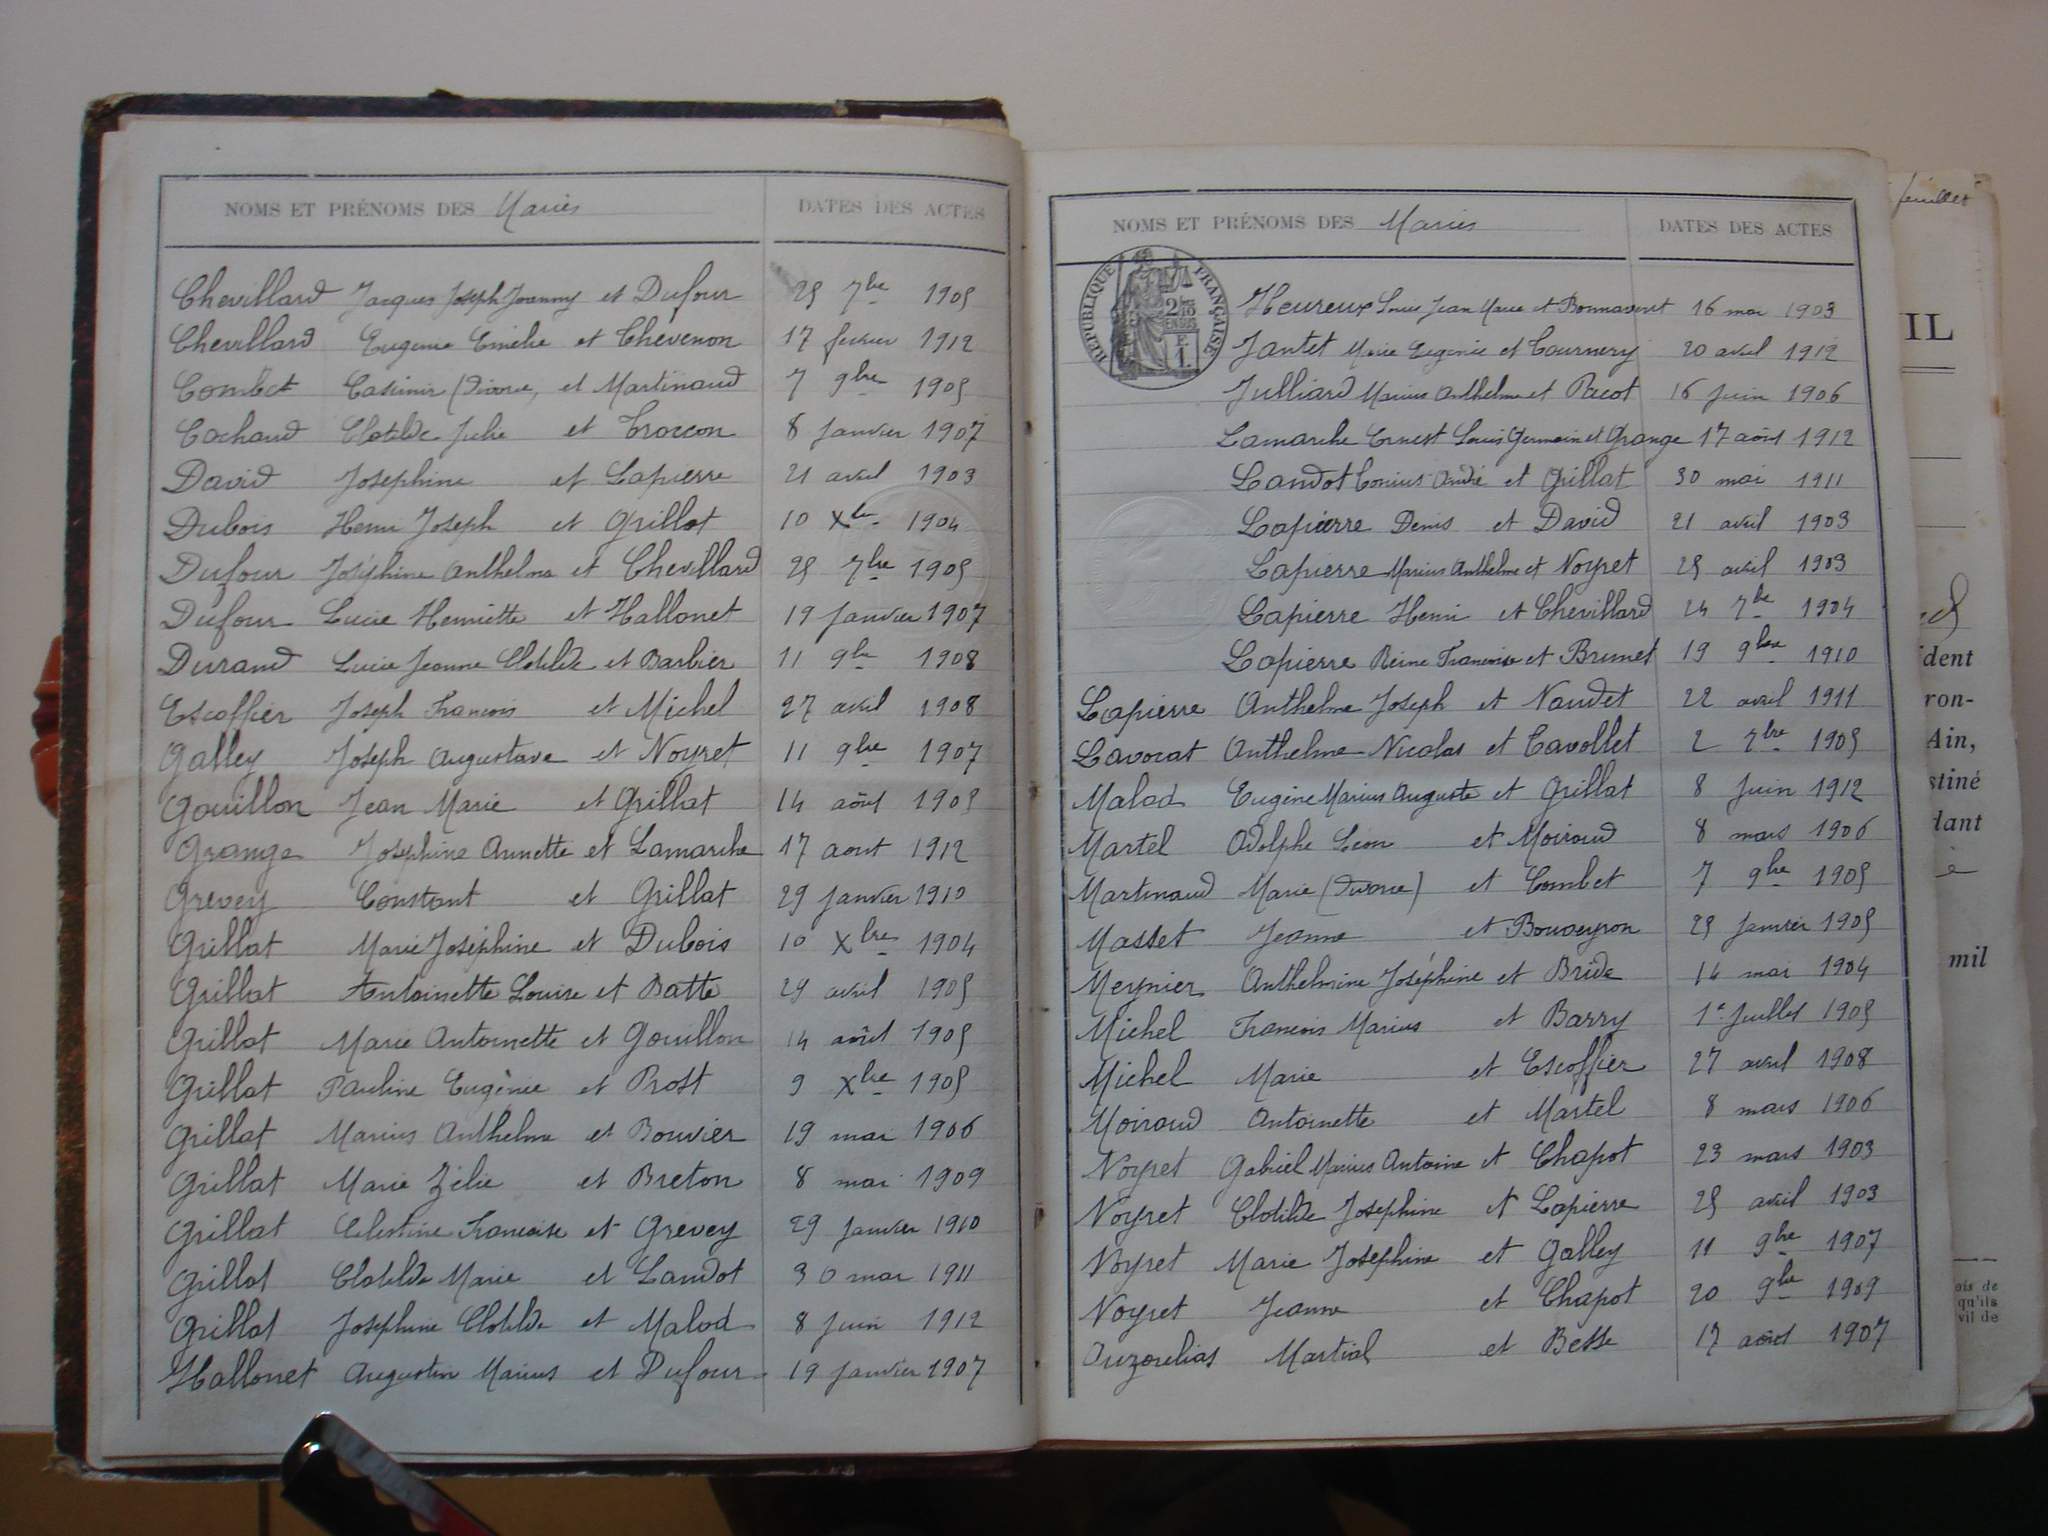 NOMS ET PRÉNOMS DES Mariés DATES DES ACTES
Chevillard Jacques Joseph Joanny et Dufour 25 7bre 1905
Chevillard Eugenie Emélie et Chevenon 17 fevrier 1912
Combet Casimir (Divorce, et Martinaud 7 9bre 1905
Cochaud Clotilde Julie et Troccon 8 Janvier 1907
David Josephine et Lapierre 21 avril 1903
Dubois Henri Joseph et Grillat 10 Xbre 1904
Dufour Joséphine Anthelma et Chevillard 25 7bre 1905
Dufour Lucie Henriette et Hallonet 19 Janvier 1907
Durand Lucie Jeanne Clotilde et Barbier 11 9bre 1908
Escoffier Joseph Francois et Michel 27 avril 1908
Galley Joseph Augustave et Noyret 11 9bre 1907
Gouillon Jean Marie et Grillat 14 août 1905
Grange Josephine Annette et Lamarche 17 aout 1912
Grevey Constant et Grillat 29 Janvier 1910
Grillat Marie Joséphine et Dubois 10 Xbre 1904
Grillat Antoinette Louise et Batte 29 avril 1905
Grillat Marie Antoinette et Gouillon 14 août 1905
Grillat Pauline Eugènie et Prost 9 Xbre 1905
Grillat Marius Anthelme et Bouvier 19 mai 1906
Grillat Marie Zélie et Breton 8 mai 1909
Grillat Celestine Francoise et Grevey 29 Janvier 1910
Grillat Clotilde Marie et Landot 30 mai 1911
Grillat Josephine Clotilde et Malod 8 Juin 1912
Hallonet Augustin Marius et Dufour 19 Janvier 1907
feuillet
NOMS ET PRÉNOMS DES Mariés DATES DES ACTES
RÉPUBLIQUE FRANÇAISE
Heureux Louis Jean Marie et Bonnavent 16 mai 1903
Jantet Marie Eugenie et Tournery 20 avril 1912
Julliard Marius Anthelme et Pacot 16 Juin 1906
Lamarche Ernest Louis Germain et Grange 17 août 1912
Landot Tonius André et Grillat 30 mai 1911
Lapierre Denis et David 21 avril 1903
Lapierre Marius Anthelme et Noyret 25 avril 1903
Lapierre Henri et Chevillard 24 7bre 1904
Lapierre Reine Francoise et Brunet 19 9bre 1910
Lapierre Anthelme Joseph et Naudet 22 avril 1911
Lavocat Anthelme Nicolas et Cavollet 2 7bre 1905
Malod Eugène Marius Auguste et Grillat 8 Juin 1912
Martel Adolphe Léon et Moiroud 8 mars 1906
Martinaud Marie (Divorce) et Combet 7 9bre 1905
Masset Jeanne et Bouveyron 25 Janvier 1905
Meynier Anthelmine Joséphine et Bride 14 mai 1904
Michel Francois Marius et Barry 1er Juillet 1905
Michel Marie et Escoffier 27 avril 1908
Moiroud Antoinette et Martel 8 mars 1906
Noyret Gabriel Marius Antoine et Chapot 23 mars 1903
Noyret Clotilde Josephine et Lapierre 25 avril 1903
Noyret Marie Josephine et Galley 11 9bre 1907
Noyret Jeanne et Chapot 20 9bre 1909
Ouzorelias Martial et Besse 17 août 1907
IL
ident
ron-
Ain,
stiné
dant
mil
ois de
qu'ils
vil de